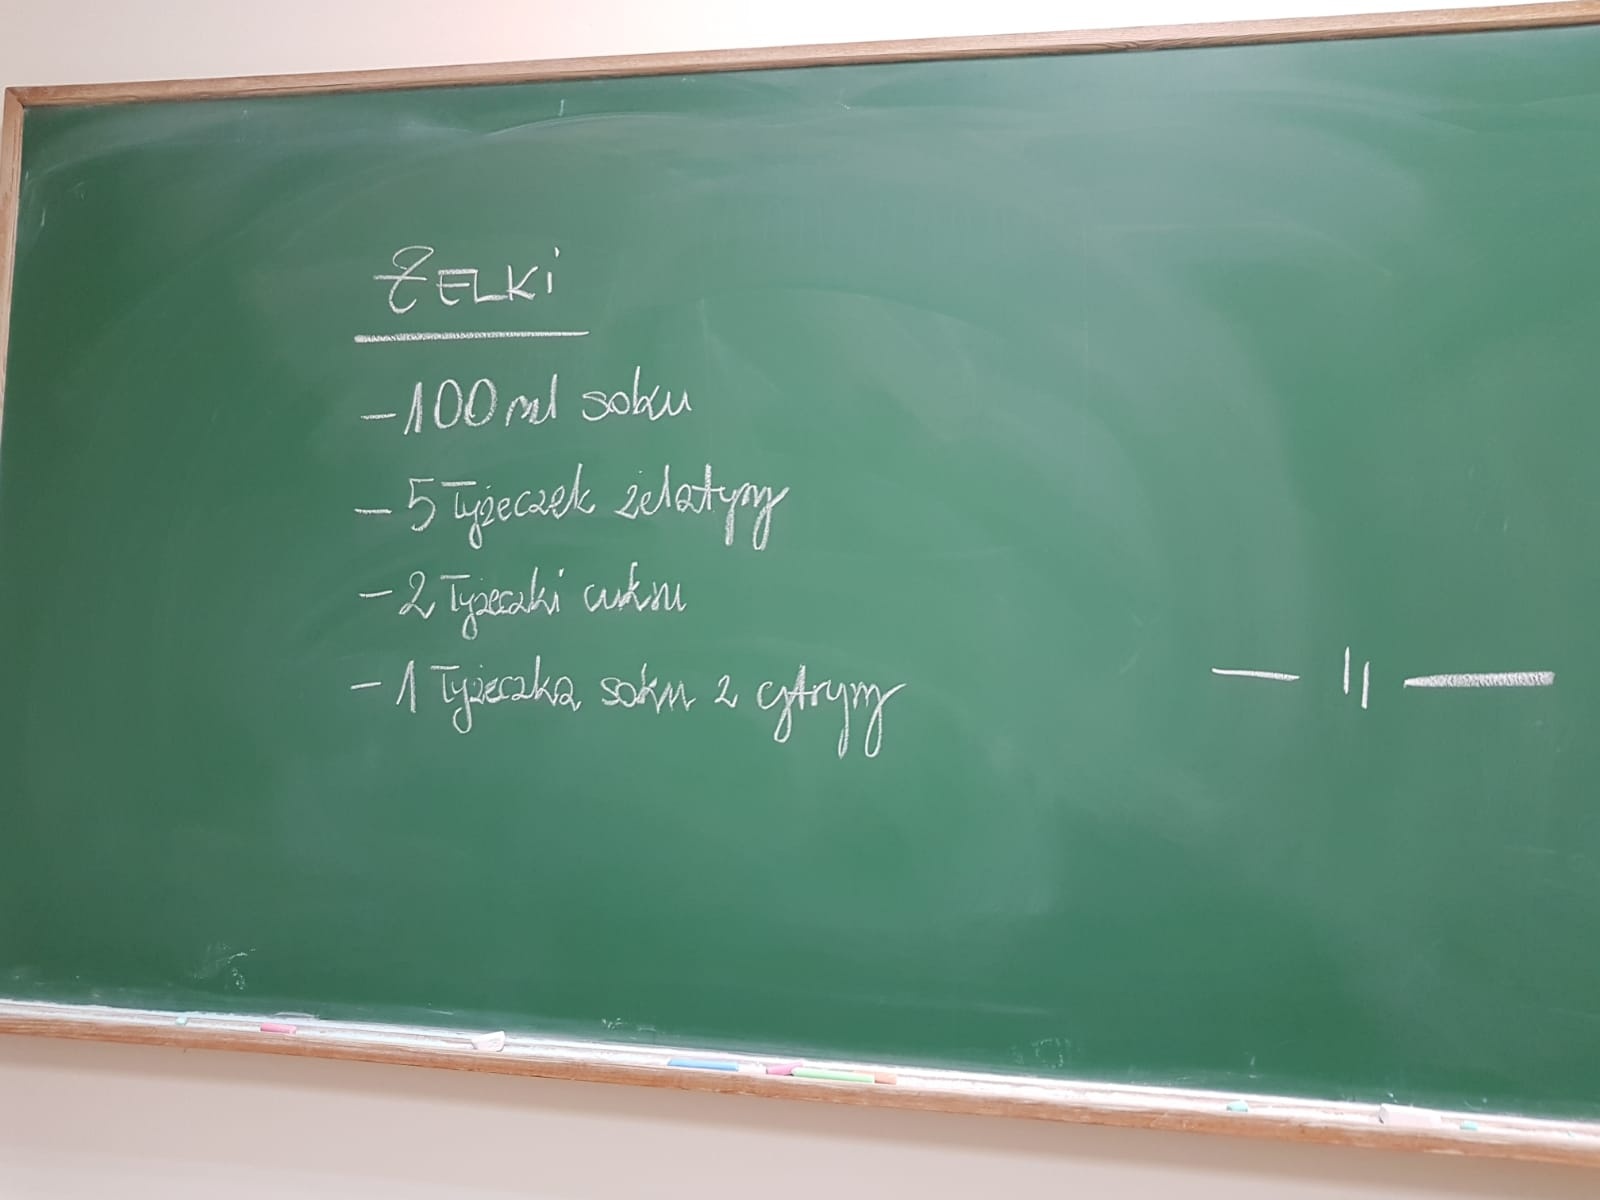 ŻELKi
- 100 ml soku
- 5 łyżeczek żelatyny
- 2 łyżeczki cukru
- 1 łyżeczka soku z cytryny
— || —